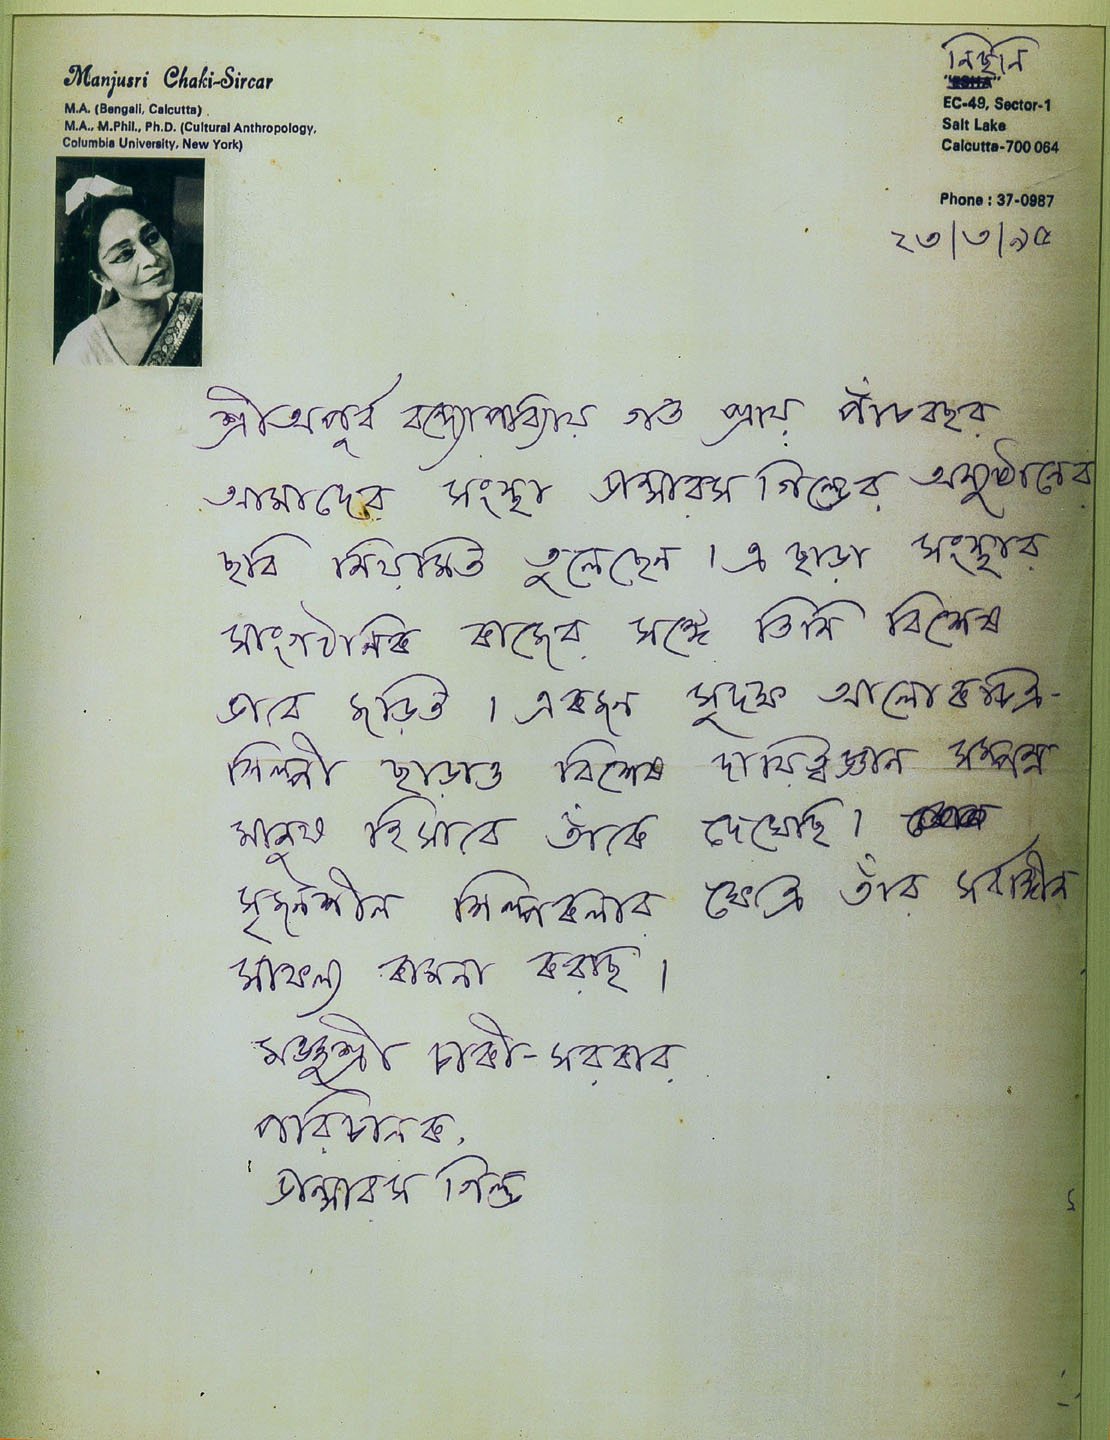 Manjusri Chaki-Sircar
M.A. (Bengali, Calcutta)
M.A., M.Phil., Ph.D. (Cultural Anthropology,
Columbia University, New York)
নিছনি
EC-49, Sector-1
Salt Lake
Calcutta-700 064
Phone : 37-0987
২৩/৩/৯৫
শ্রীঅপূর্ব বন্দ্যোপাধ্যায় গত প্রায় পাঁচবছর
আমাদের সংস্থা ডান্সারস গিল্ডের অনুষ্ঠানের
ছবি নিয়মিত তুলেছেন । এ ছাড়া সংস্থার
সাংগঠনিক কাজের সঙ্গে তিনি বিশেষ
ভাবে জড়িত । একজন সুদক্ষ আলোকচিত্র-
শিল্পী ছাড়াও বিশেষ দায়িত্বজ্ঞান সম্পন্ন
মানুষ হিসাবে তাঁকে দেখেছি ।
সৃজনশীল শিল্পকলার ক্ষেত্রে তাঁর সর্বাঙ্গীন
সাফল্য কামনা করছি ।
মঞ্জুশ্রী চাকী-সরকার
পরিচালক,
ডান্সারস গিল্ড